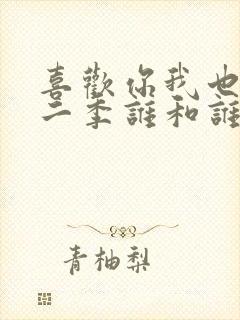 喜歡你我也
二季誰和誰
青柚梨